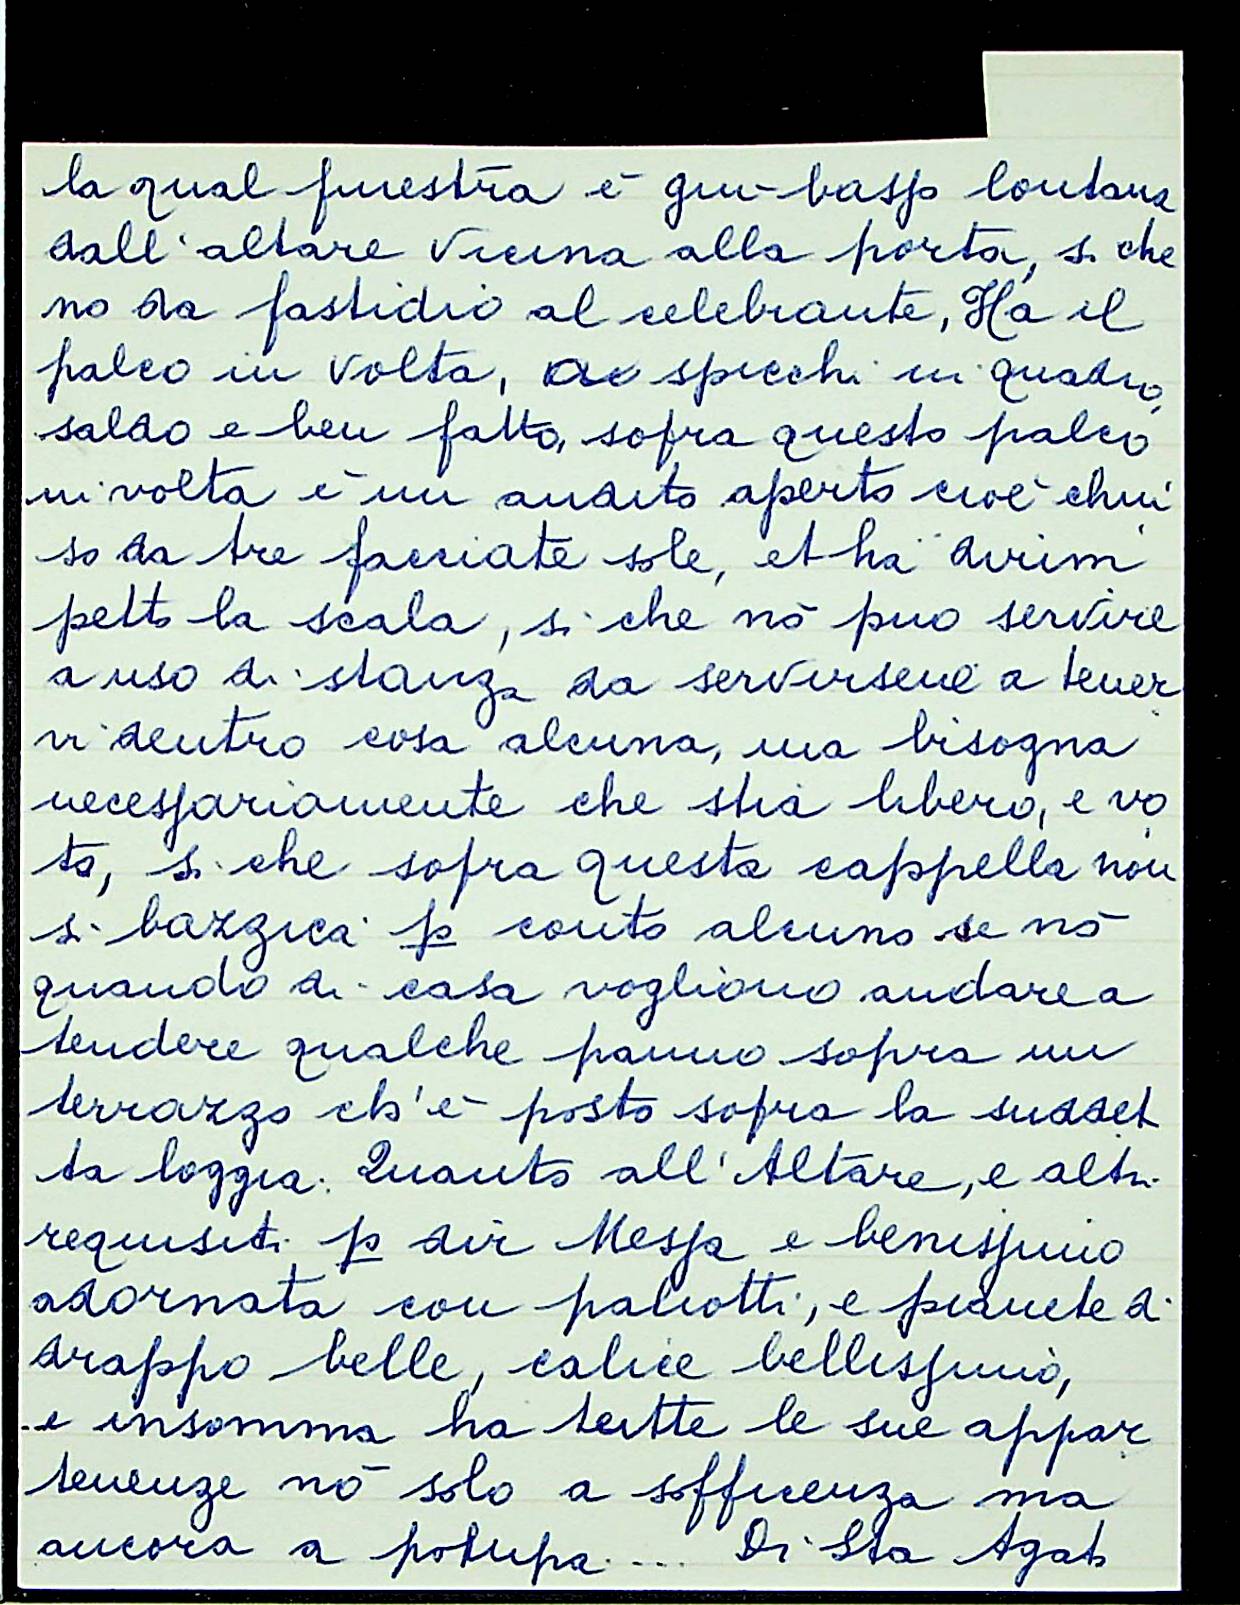 la qual finestra è giu-basso lontana
dall'altare vicina alla porta, si che
no da fastidio al celebrante, Ha il
palco in volta, a spicchi in quadro,
saldo e ben fatto, sopra questo palco
in volta è un andito aperto cioè chiu
so da tre facciate sole, et ha dirim
petto la scala, si che nō puo servire
a uso di stanza da servirsene a tener
vi dentro cosa alcuna, ma bisogna
necessariamente che stia libero, e vo
to, si che sopra questa cappella non
si bazzica p conto alcuno se nō
quando di casa vogliono andare a
tendere qualche panno sopra un
terrazzo ch'è posto sopra la suddet
ta loggia. Quanto all'Altare, e altri
requisiti p dir Messa e benissimo
adornata con paliotti, e pianete di
drappo belle, calice bellissimo,
e insomma ha tutte le sue appar
tenenze nō solo a sofficenza ma
ancora a .... Di Sta Agata